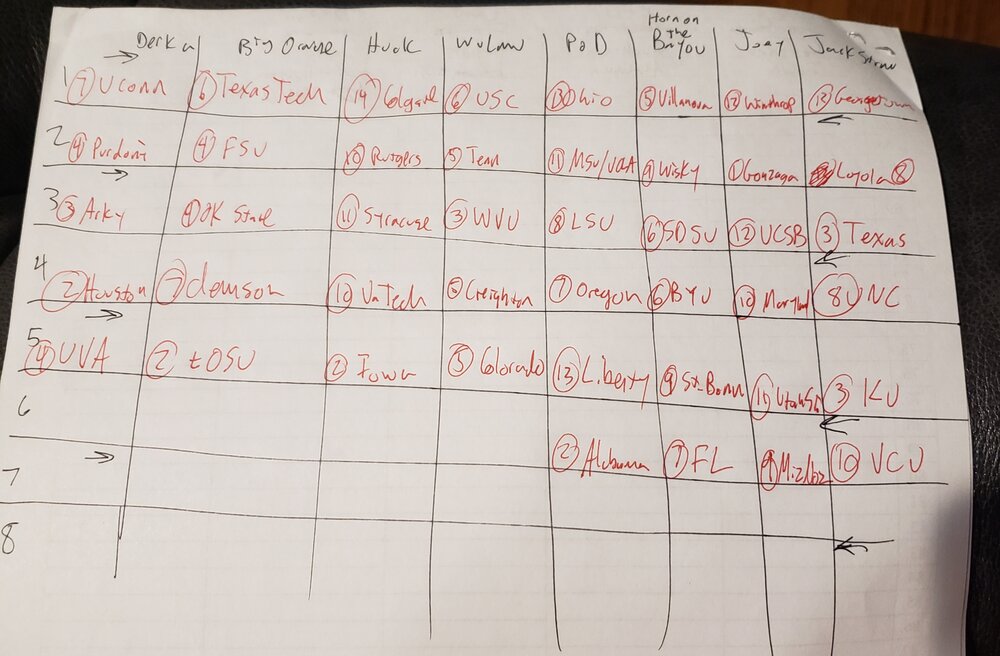 Derka Big Orange Huck Wulaw PoD Horn on The Bayou Joey Jackstraw
1 7 Uconn 6 Texas Tech 14 Colgate 6 USC 13 Ohio 5 Villanova 12 Winthrop 12 Georgetown
2 4 Purdont 4 FSU 10 Rutgers 5 Tenn 11 MSU/UCLA 9 Wisky 1 Gonzaga Loyola 8
3 3 Arky 4 OK State 11 Syracuse 3 WVU 8 LSU 6 SDSU 12 UCSB 3 Texas
4 2 Houston 7 Clemson 10 Va Tech 5 Creighton 7 Oregon 6 BYU 10 Maryland 8 UNC
5 4 UVA 2 tOSU 2 Iowa 5 Colorado 13 Liberty 9 St. Bonn 11 Utah St 3 KU
6 2 Alabama 7 FL 9 Mizzou 10 VCU
7
8